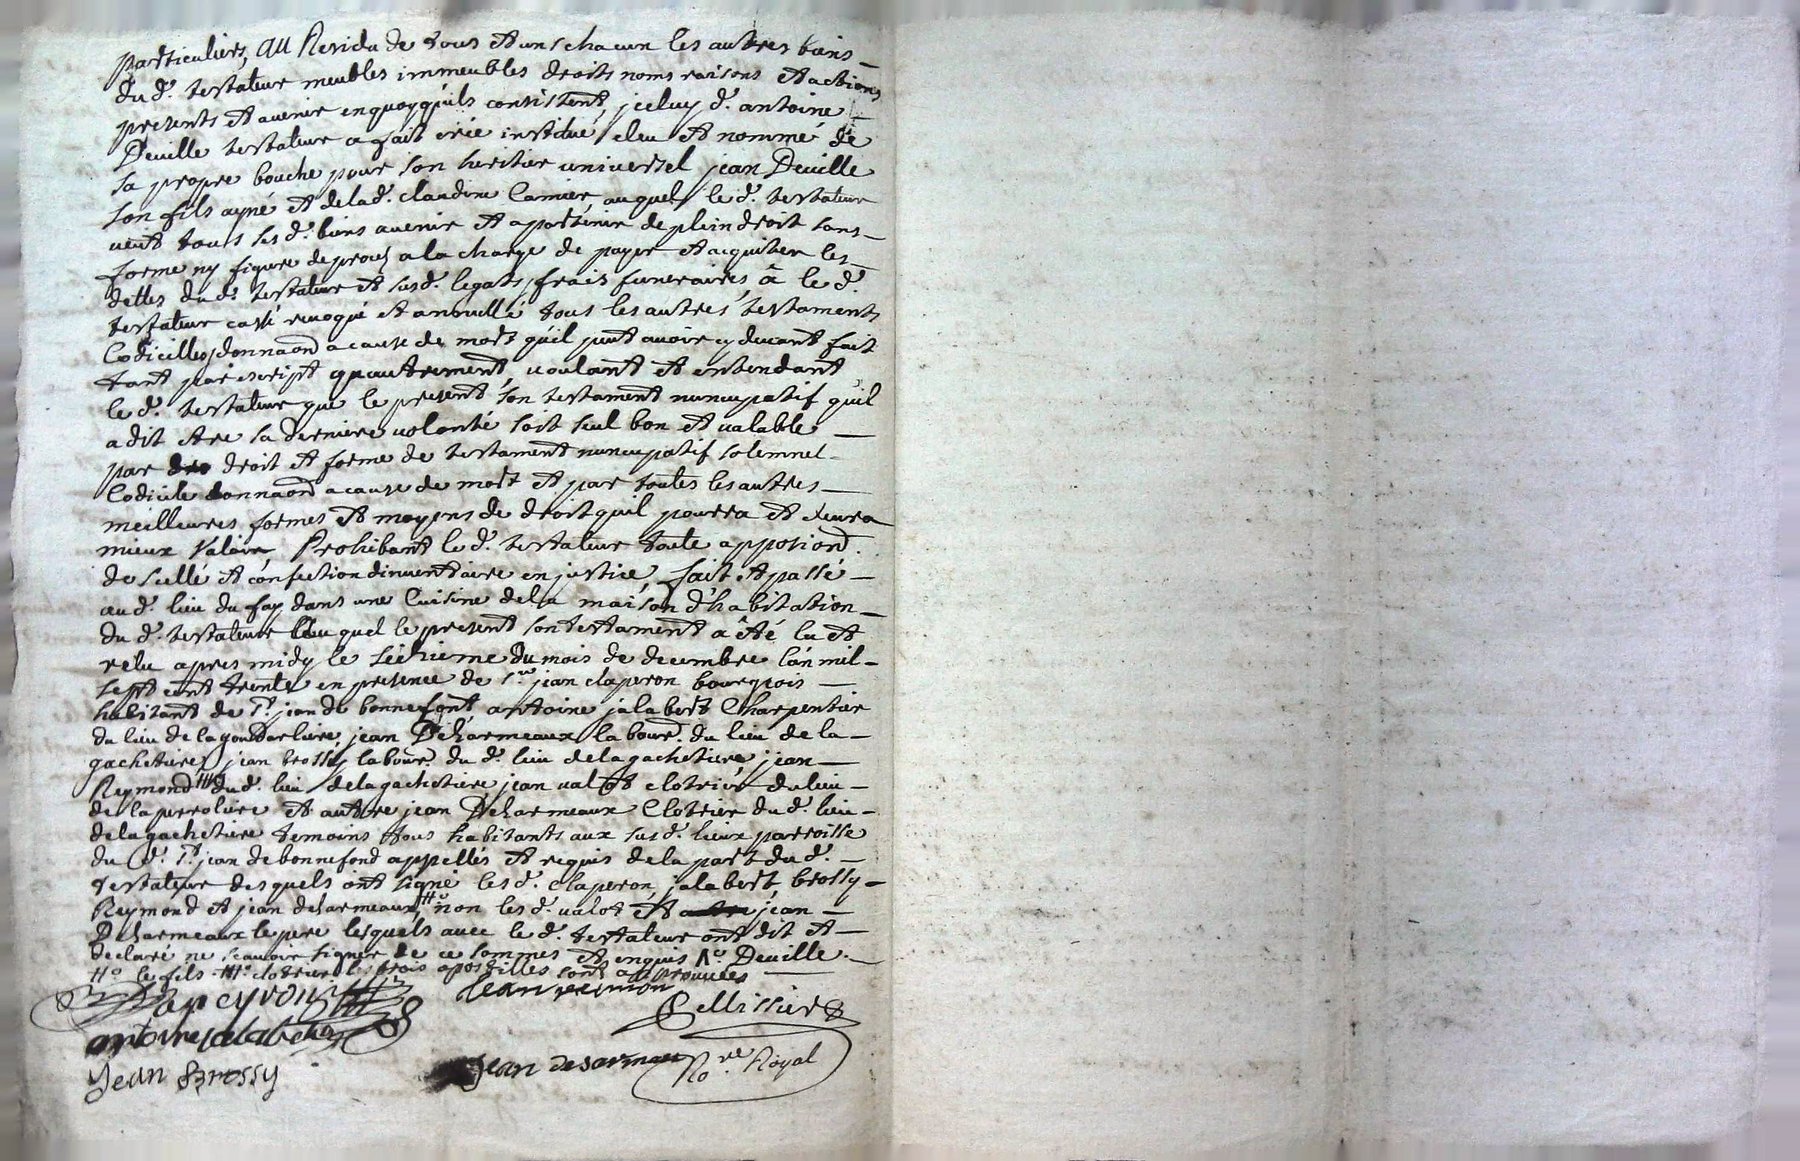 particuliers, au Residu de tous et uns chacun les autres biens
du d.^t testateur meubles immeubles droits noms raisons et actions
presents et avenir enquoyquils consistent, jceluy d.^t antoine
Deville testateur a fait crée institué, eleu et nommé de
sa propre bouche pour son heritier universel jean Deville
son fils ayné et delad.^t claudine Camier, auquel le d.^t testateur
veut tous ses d.^t biens avenir et apartenir de plein droit sans
forme ny figure de procès a la charge de payer et acquiter les
dettes du d.^t testateur et susd.^t legats, frais funeraires, â le d.^t
testateur cassé revoqué et annullé tous les autres testaments
Codicilles, donnaon^d a cause de mort qu'il peut avoir cy devant fait
tant par escript qu autrement, voulant et entendant
le d.^t testateur que le present son testament nuncupatif qu'il
a dit etre sa derniere volonté soit seul bon et valable
par droit et forme de testament nuncupatif solemnel
Codicile donnaon^d a cause de mort et par toutes les autres
meilleures formes et moyens de droit quil pourra et
mieux Valoir, Prohibant le d.^t testateur toute apposiond.
de scellé et confection dinventaire en justice, fait et passé
au d.^t lieu du fay dans une Cuisine dela maison d'habitation
du d.^t testateur auquel le present son testament a êté lu et
relu apres midy le sézieme du mois de decembre l'an mil
sept cent trente en presence de s.^r jean claperon bourgeois
habitant de S.^t jean de bonnefont antoine jalabert Charpentier
du lieu de la jean Desharmeaux labour. du lieu de la
gachetiere, jean brossy labour. du d.^t lieu delagachetiere jean
Reymond du d.^t lieu delagachetiere jean valot clotrier du lieu
de et autre jean Desharmeaux Clotrier du d.^t lieu
delagachetiere temoins tous habitants aux susd.^t lieux parroisse
du d.^t S.^t jean de bonnefond appellés et requis dela part dud.^t
testateur desquels ont signé les d.^t claperon, jalabert, brossy
Reymond et jean desarmeaux non les d.^t valot et jean
Desarmeaux le pere lesquels avec le d.^t testateur ont dit et
declaré ne scavoir signer de ce sommés et enquis Deville
le fils clotrier les trois apostilles sont approuvées
Clapeyron
jean reimon
Pellissier
antoine jalabert
Jean Brossy
jean desarmau
No.^re Royal